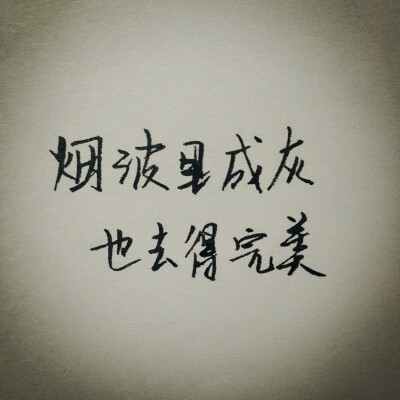 烟波里成灰
也去得完美